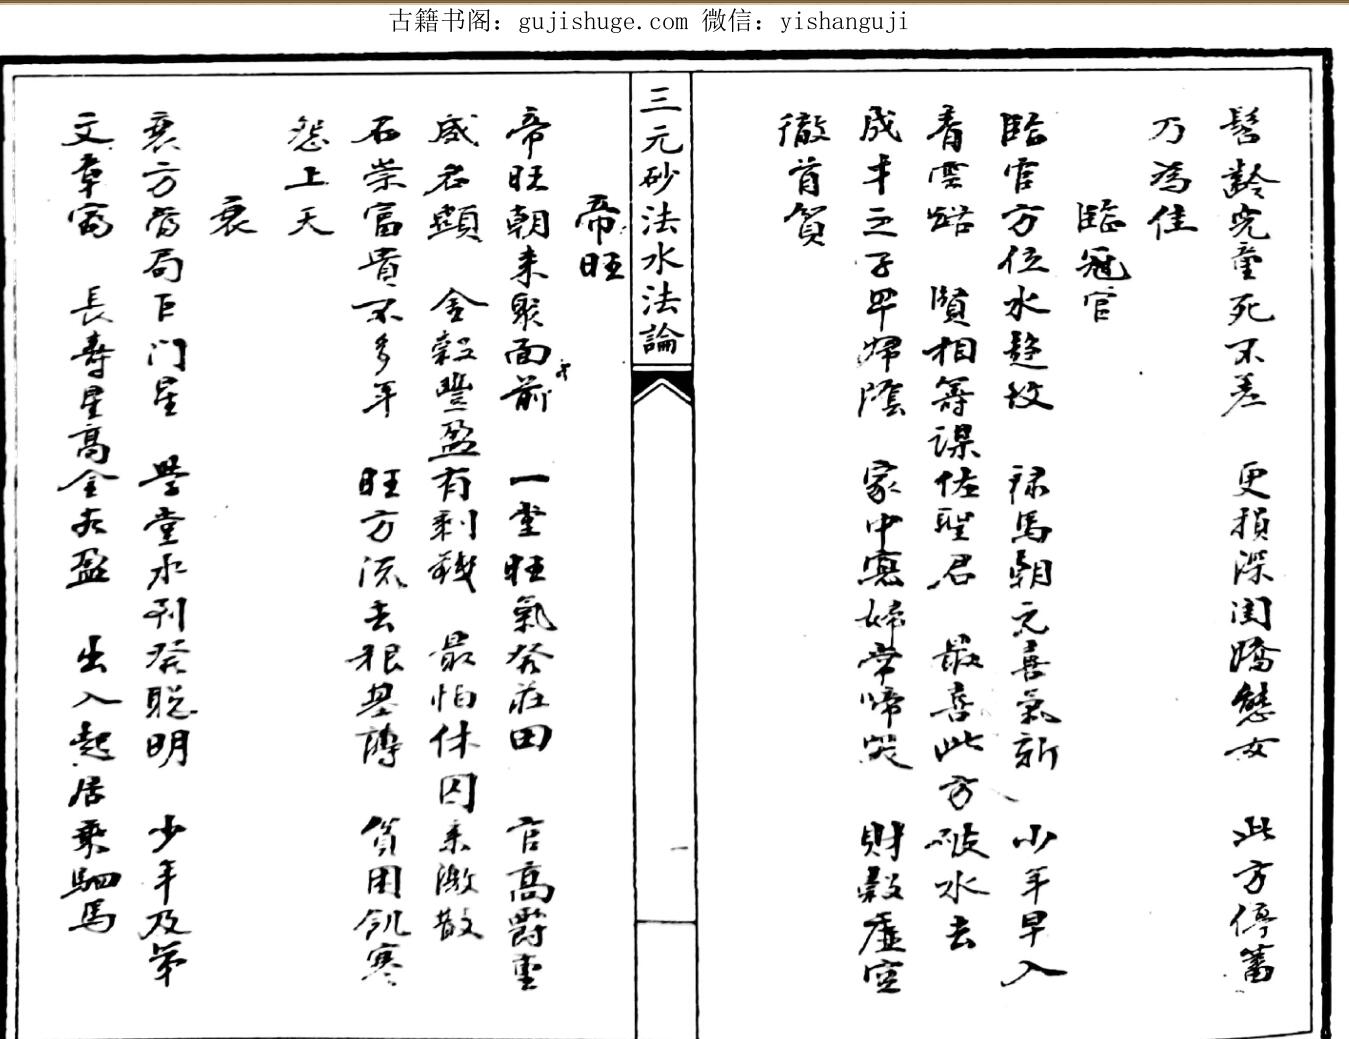 古籍书阁：gujishuge.com 微信：yishanguji
髫齡児童死不差　更損深闺嬌態女　此方停蓄
乃為佳
臨冠官
臨官方位水趋坟　禄馬朝元喜氣新　少年早入
青雲路　賢相籌謀佐聖君　最喜此方破水去
成才之子早歸陰　家中寡婦常啼哭　財穀虛空
徹首貧
三元砂法水法論
一
帝旺
帝旺朝来聚面前　一堂旺氣発莊田　官高爵重
威名顯　金穀豐盈有剩錢　最怕休囚来激散
石崇富貴不多年　旺方流去根基薄　貧困飢寒
怨上天
衰
衰方舊局巨门星　學堂水到発聪明　少年及第
文章富　長壽星高金水盈　出入起居乘駟馬